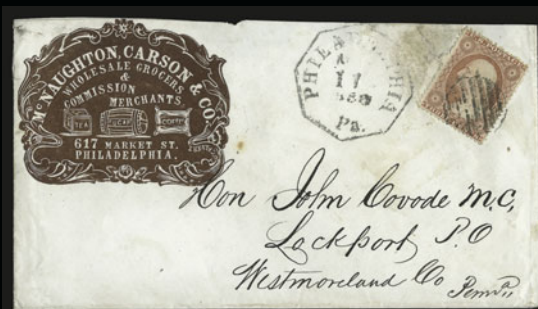 McNAUGHTON, CARSON & CO.
WHOLESALE GROCERS
&
COMMISSION
MERCHANTS
TEA
SUGAR
COFFEE
617 MARKET ST.
PHILADELPHIA.
PHILADELPHIA
17
Pa.
Hon John Covode M.C,
Lockport P.O
Westmoreland Co Penna